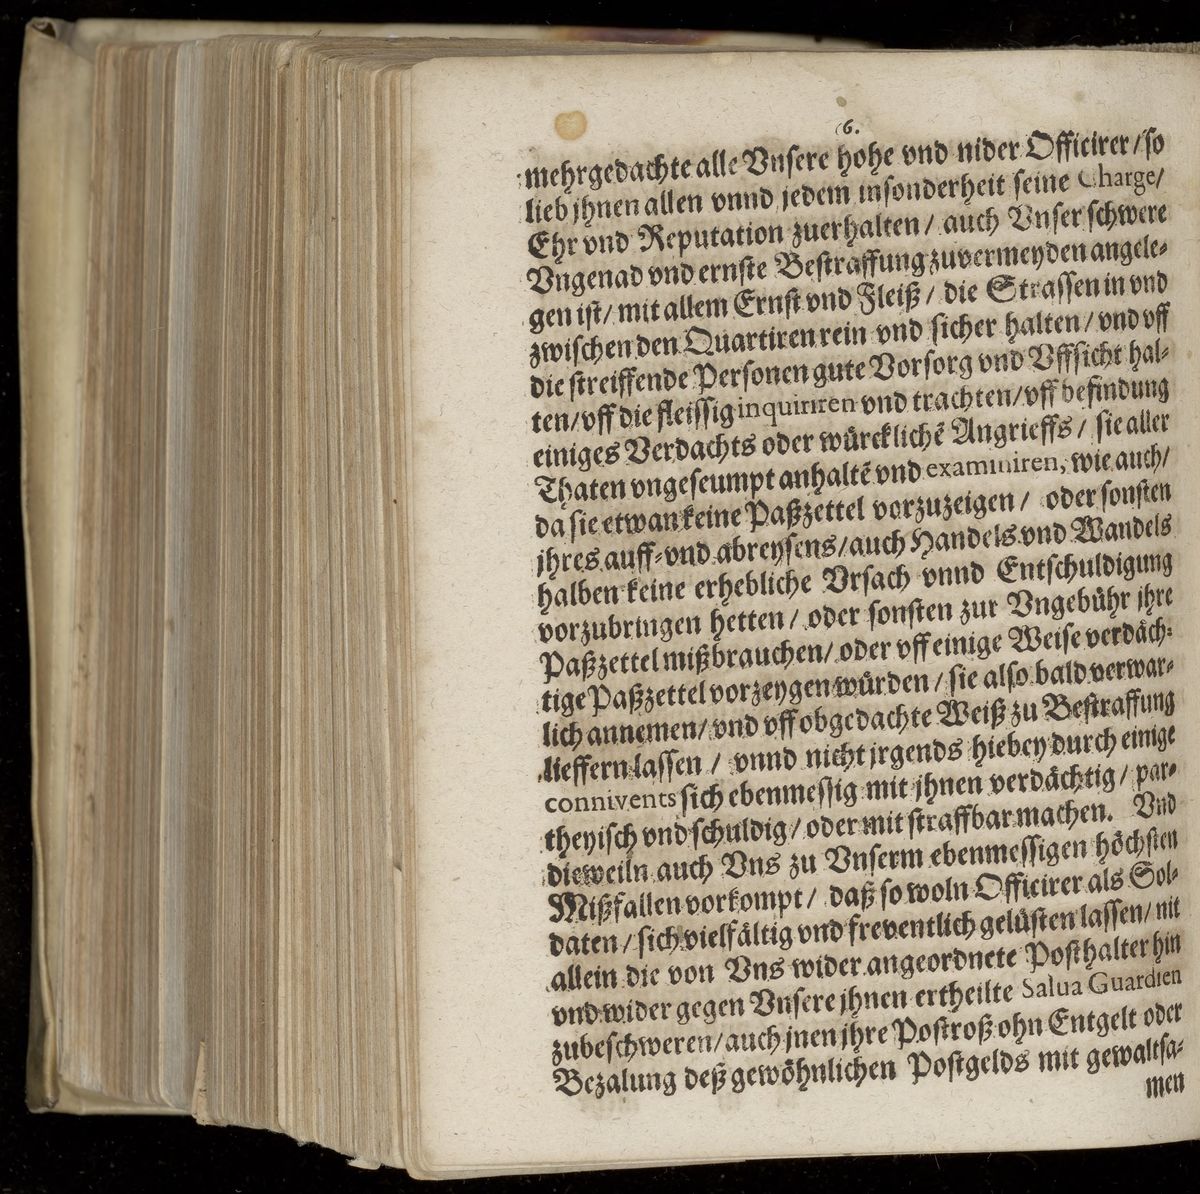 6.
mehrgedachte alle Vnsere hohe vnd nider Officirer / so
lieb jhnen allen vnnd jedem insonderheit seine Charge/
Ehr vnd Reputation zuerhalten / auch Vnser schwere
Vngenad vnd ernste Bestraffung zuvermeyden angele-
gen ist / mit allem Ernst vnd Fleiß / die Strassen in vnd
zwischen den Quartiren rein vnd sicher halten / vnd vff
die streiffende Personen gute Vorsorg vnd Vffsicht hal-
ten / vff die fleissig inquiriren vnd trachten / vff befindung
einiges Verdachts oder würcklichẽ Angrieffs / sie aller
Thaten vngeseumpt anhaltẽ vnd examiniren, wie auch/
da sie etwan keine Paßzettel vorzuzeigen / oder sonsten
jhres auff- vnd abreysens / auch Handels vnd Wandels
halben keine erhebliche Vrsach vnnd Entschuldigung
vorzubringen hetten / oder sonsten zur Vngebühr jhre
Paßzettel mißbrauchen / oder vff einige Weise verdäch-
tige Paßzettel vorzeygen würden / sie also bald verwar-
lich annemen / vnd vff obgedachte Weiß zu Bestraffung
lieffern lassen / vnnd nicht jrgends hiebey durch einige
connivents sich ebenmessig mit jhnen verdächtig / par-
theyisch vnd schuldig / oder mit straffbar machen. Vnd
dieweiln auch Vns zu Vnserm ebenmessigen höchsten
Mißfallen vorkompt / daß so woln Officirer als Sol-
daten / sich vielfältig vnd freventlich gelüsten lassen / nit
allein die von Vns wider angeordnete Posthalter hin
vnd wider gegen Vnsere jhnen ertheilte Salua Guardien
zubeschweren / auch jnen jhre Postroß ohn Entgelt oder
Bezalung deß gewöhnlichen Postgelds mit gewaltsa-
men